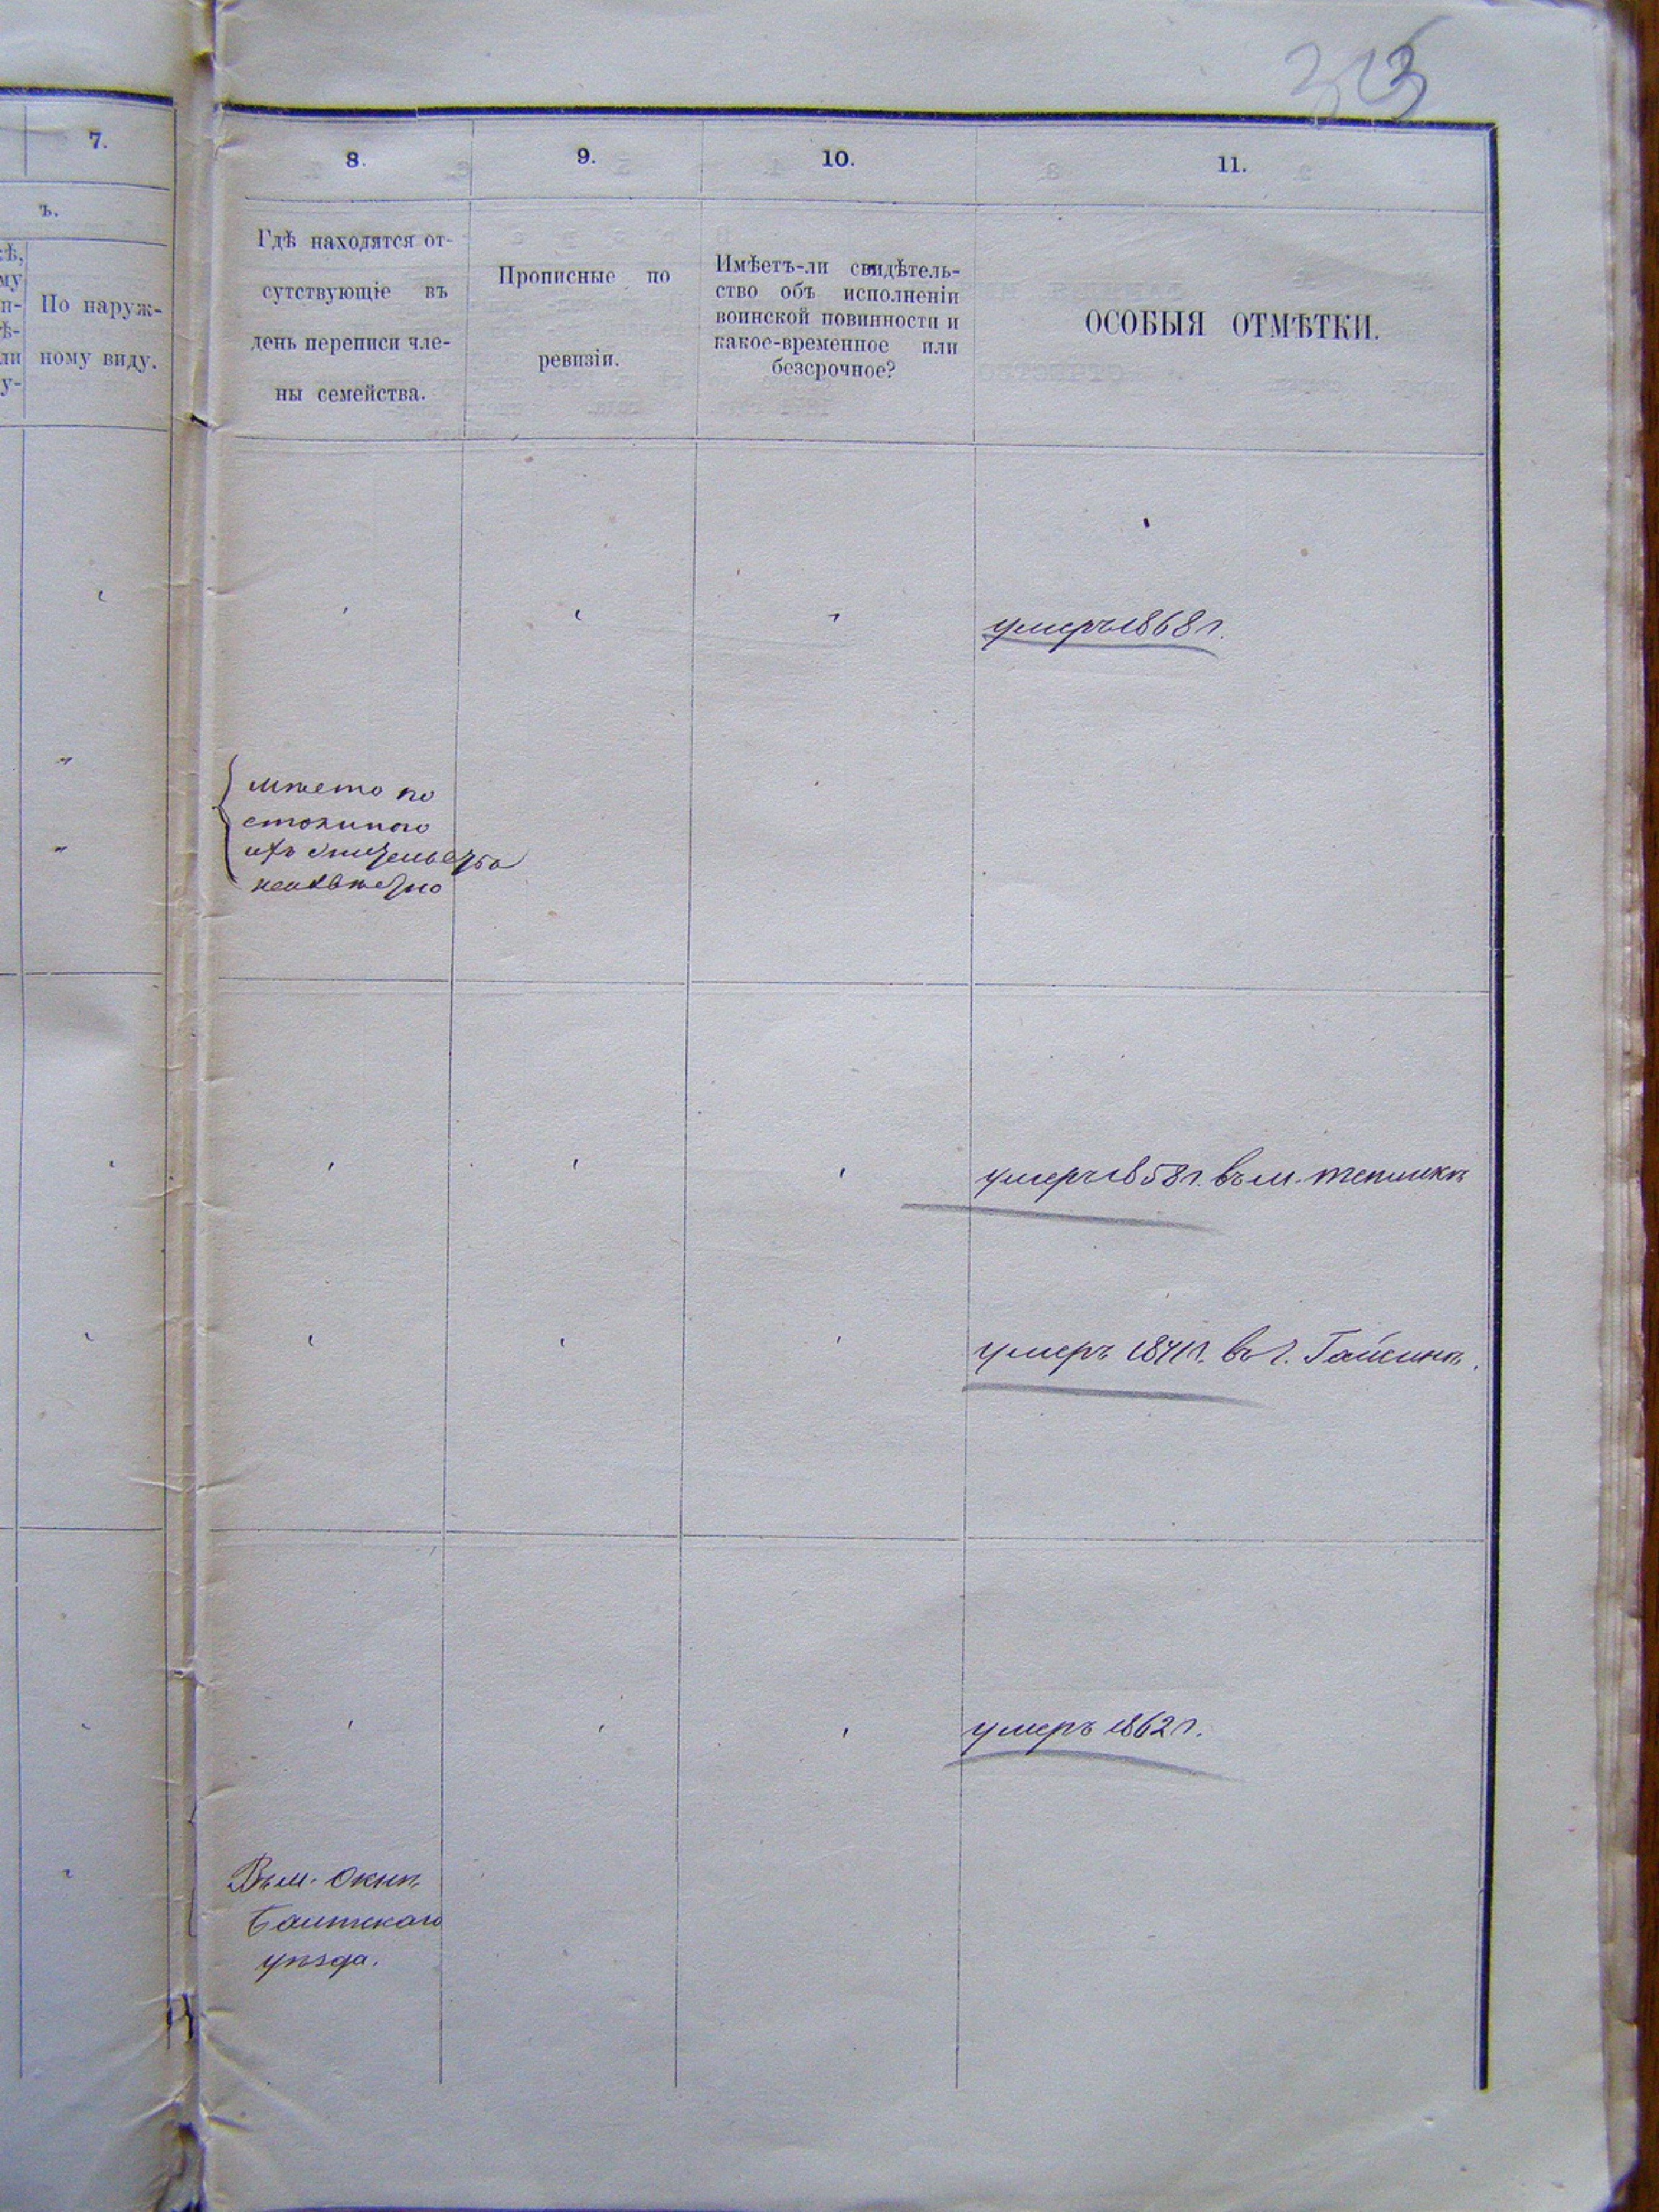 7.
ъ.
По наруж-
ному виду.
8.
9.
10.
11.
Гдѣ находятся от-
сутствующіе въ
день переписи чле-
ны семейства.
Прописные по
ревизіи.
Имѣетъ-ли свидѣтель-
ство объ исполненіи
воинской повинности и
какое-временное или
безсрочное?
ОСОБЫЯ ОТМѢТКИ.
умеръ 1868 г.
мѣсто по
стояннаго
ихъ жительства
неизвѣстно
умеръ 1858 г. въ м. Тепликѣ
умеръ 1871 г. въ г. Гайсинѣ.
умеръ 1862 г.
Въ м. Окнѣ
Балтскаго
уѣзда.